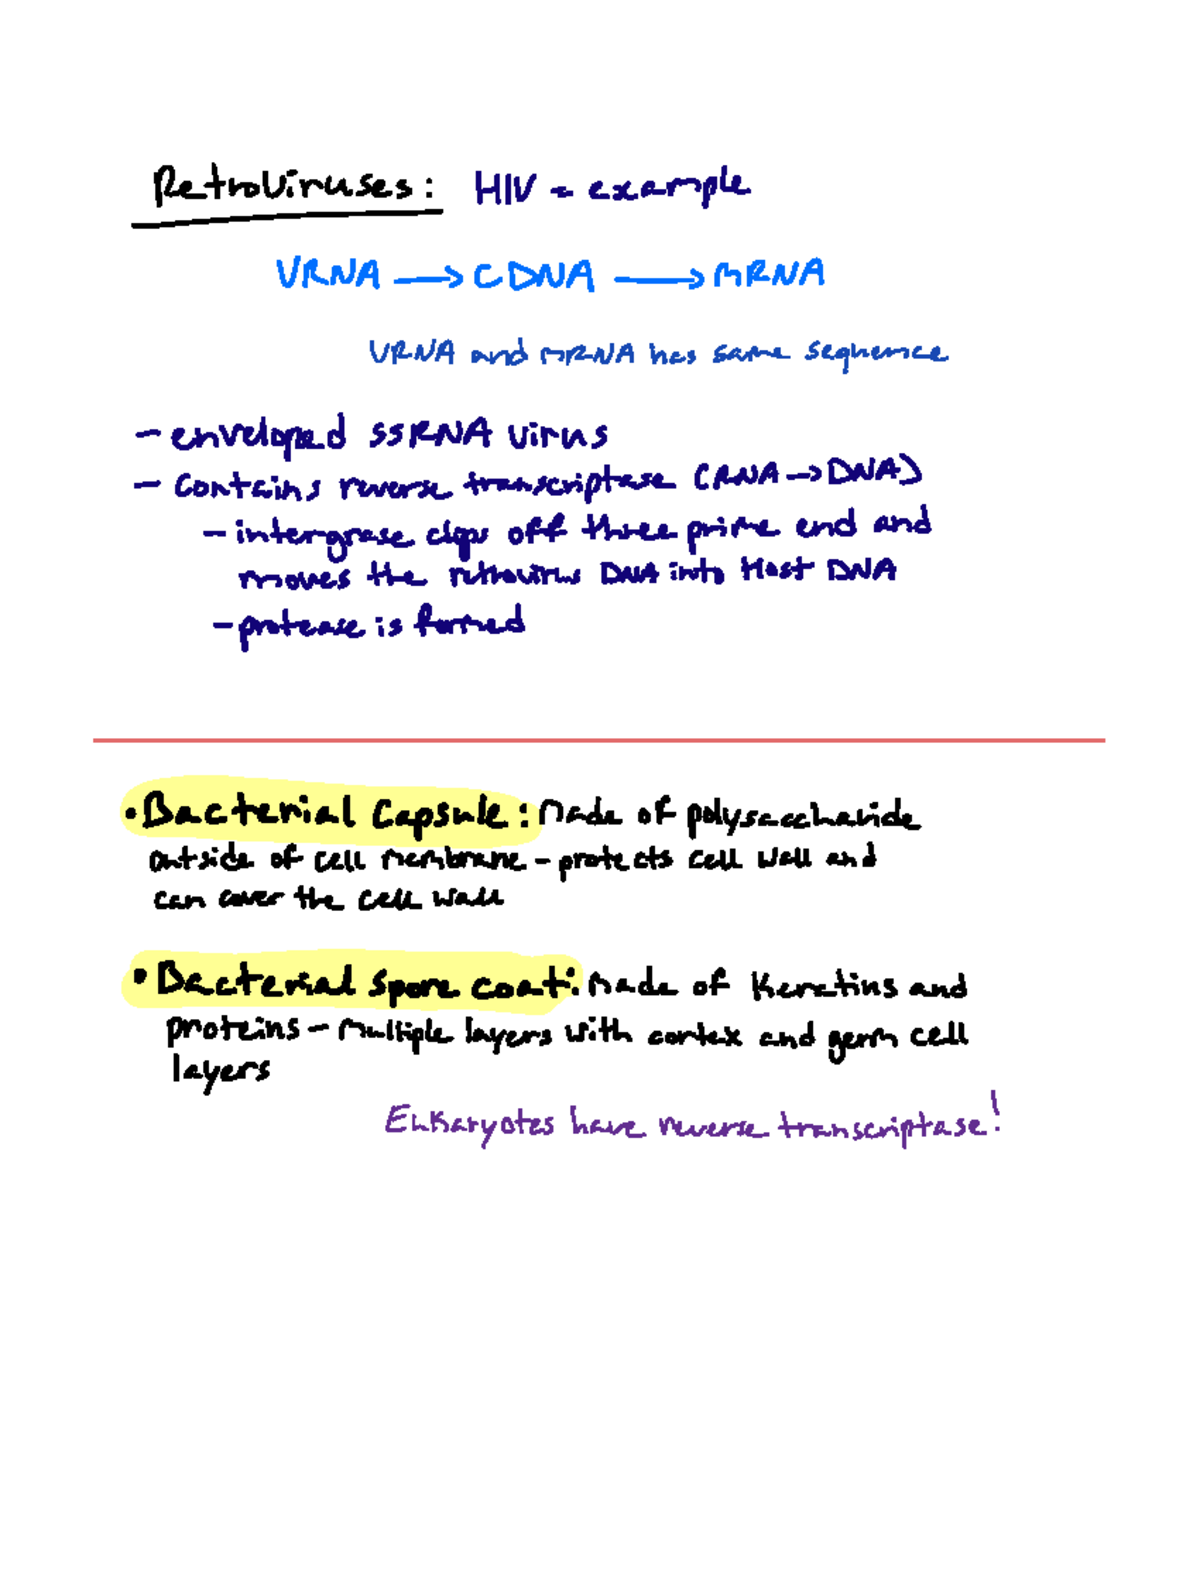 Retroviruses: HIV = example
VRNA → CDNA → MRNA
VRNA and MRNA has same sequence
- enveloped SSRNA virus
- contains reverse transcriptase (RNA → DNA)
- intergrase clips off three prime end and
moves the retrovirus DNA into Host DNA
- protease is formed
• Bacterial Capsule: Made of polysaccharide
outside of cell membrane - protects cell wall and
can cover the cell wall
• Bacterial spore coat: Made of Keratins and
proteins - Multiple layers with cortex and germ cell
layers
Eukaryotes have reverse transcriptase!